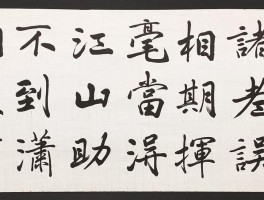 諸老誤
相期揮
毫當得
江山助
不到瀟